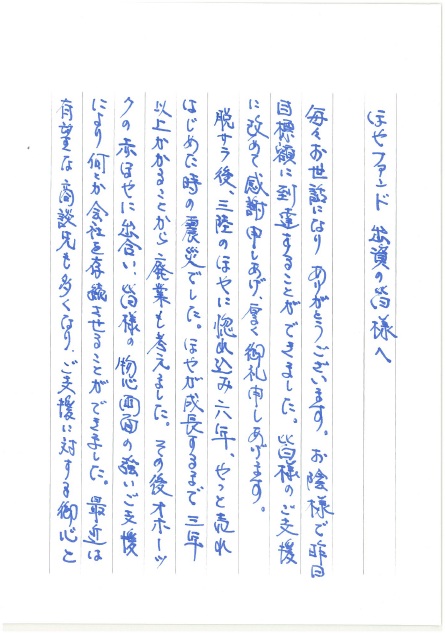 ほやファンド 出資の皆様へ
毎々お世話になり ありがとうございます。お陰様で昨日
目標額に到達することができました。皆様のご支援
に改めて感謝申しあげ、厚く御礼申しあげます。
脱サラ後、三陸のほやに惚れ込み六年、やっと売れ
はじめた時の震災でした。ほやが成長するまで三年
以上かかることから廃業も考えました。その後オホーツ
クの赤ほやに出合い、皆様の物心両面の強いご支援
により何とか会社を存続させることができました。最近は
有望な商談先も多くなり、ご支援に対する御心と